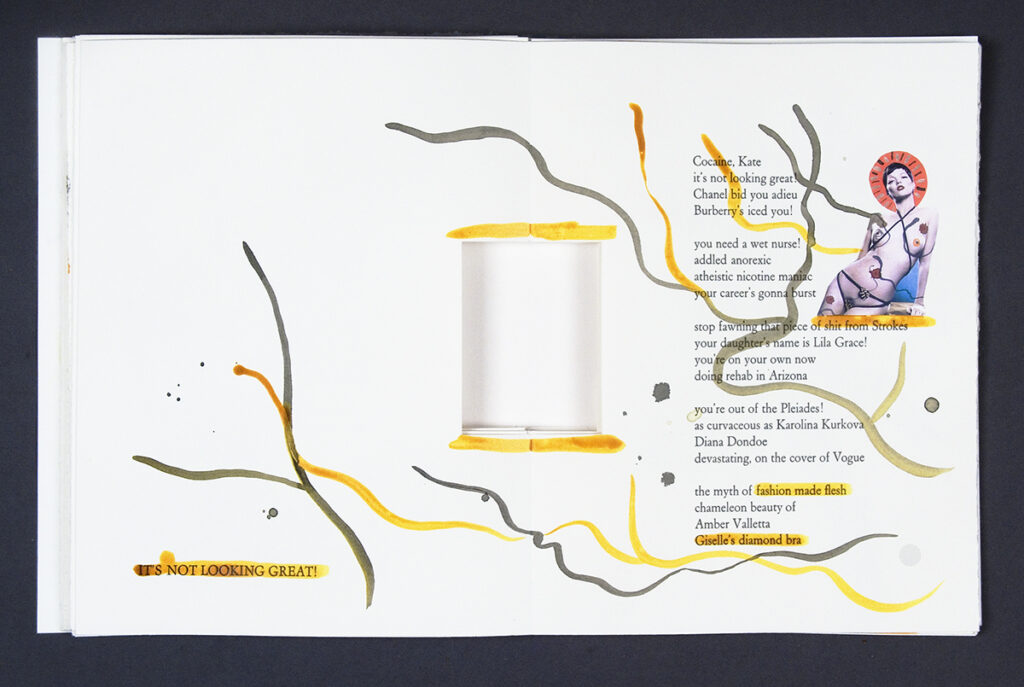 IT'S NOT LOOKING GREAT!
Cocaine, Kate
it's not looking great!
Chanel bid you adieu
Burberry's iced you!
you need a wet nurse!
addled anorexic
atheistic nicotine maniac
your career's gonna burst
stop fawning that piece of shit from Strokes
your daughter's name is Lila Grace!
you're on your own now
doing rehab in Arizona
you're out of the Pleiades!
as curvaceous as Karolina Kurkova
Diana Dondoe
devastating, on the cover of Vogue
the myth of fashion made flesh
chameleon beauty of
Amber Valletta
Giselle's diamond bra